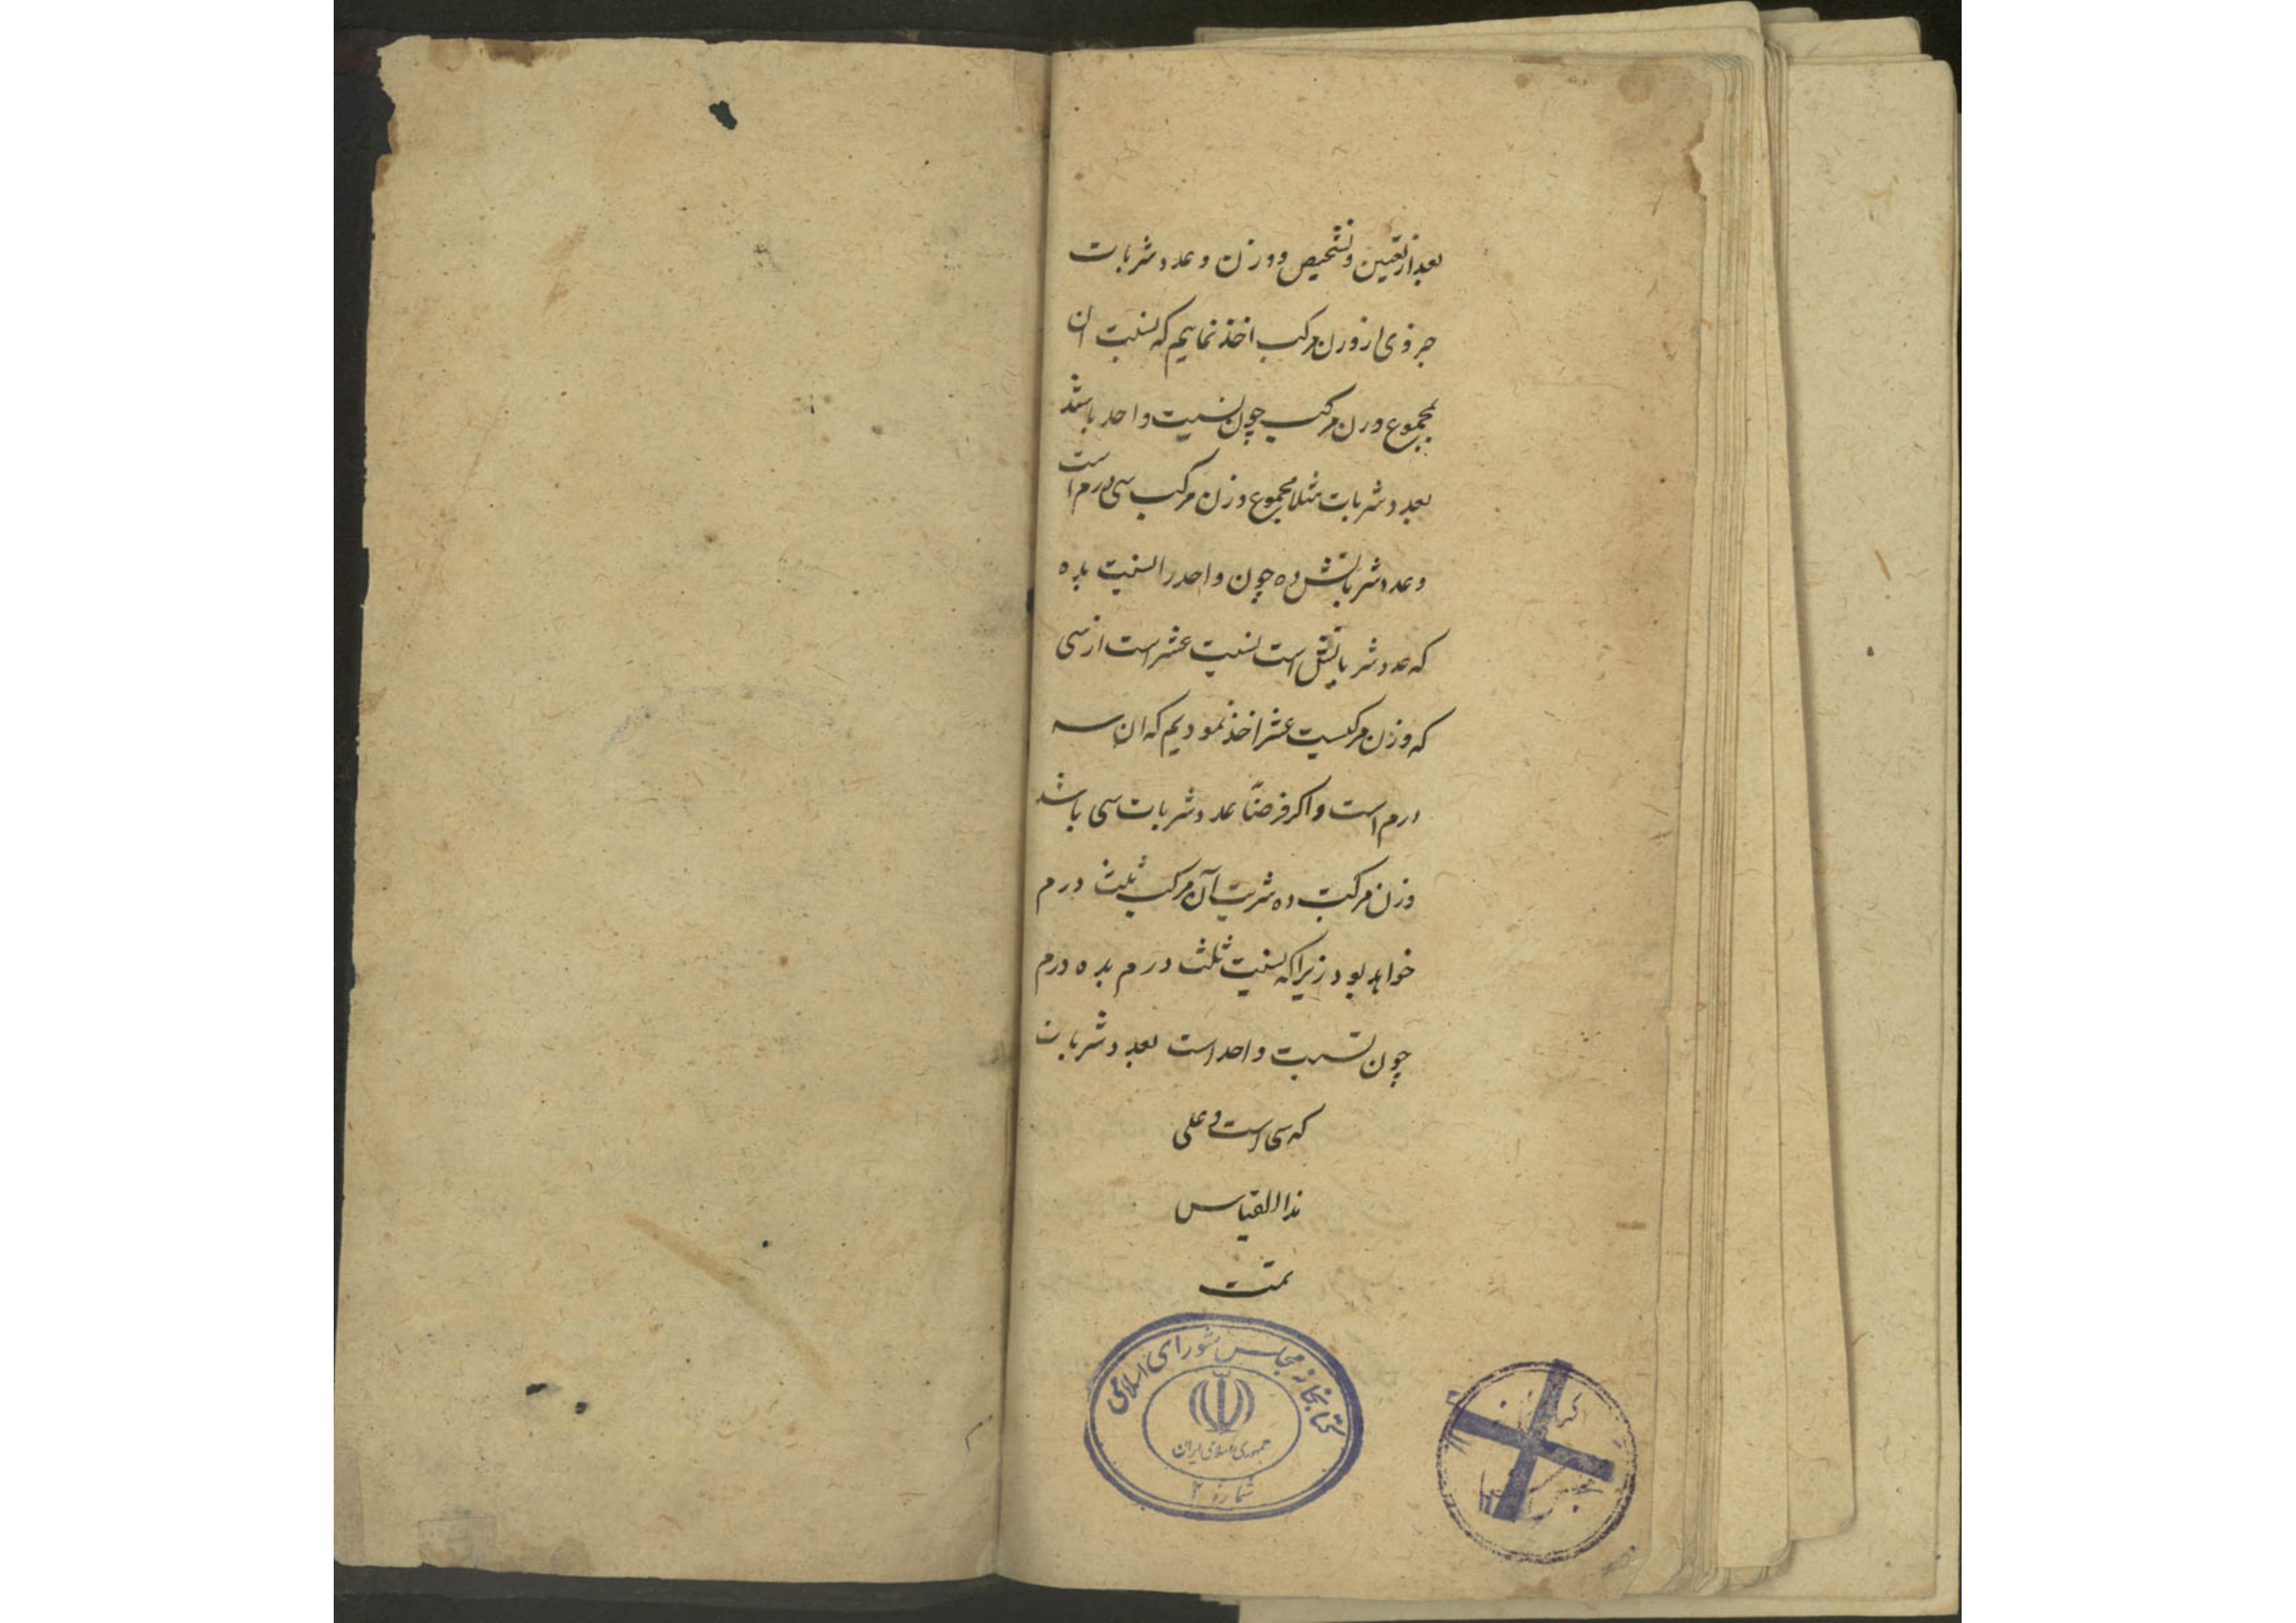 بعد از تعیین و تشخیص و وزن و عدد شربات
جزوی از وزن مرکب اخذ نماییم که نسبت ان
بمجموع وزن مرکب چون نسبت واحد باشد
بعدد شربات مثلا مجموع وزن مرکب سی درم است
و عدد شرباتش ده چون واحد را نسبت بده
که عدد شرباتش است نسبت عشر است از سی
که وزن مرکبست عشر اخذ نمودیم که ان سه
درم است و اکر فرضاً عدد شربات سی باشد
وزن مرکب ده شربت آن مرکب ثلث درم
خواهد بود زیرا که نسبت ثلث درم بده درم
چون نسبت واحد است بعدد شربات
که سی است و علی
هذا القیاس
تمت
کتابخانه مجلس شورای اسلامی
جمهوری اسلامی ایران
شماره ۲